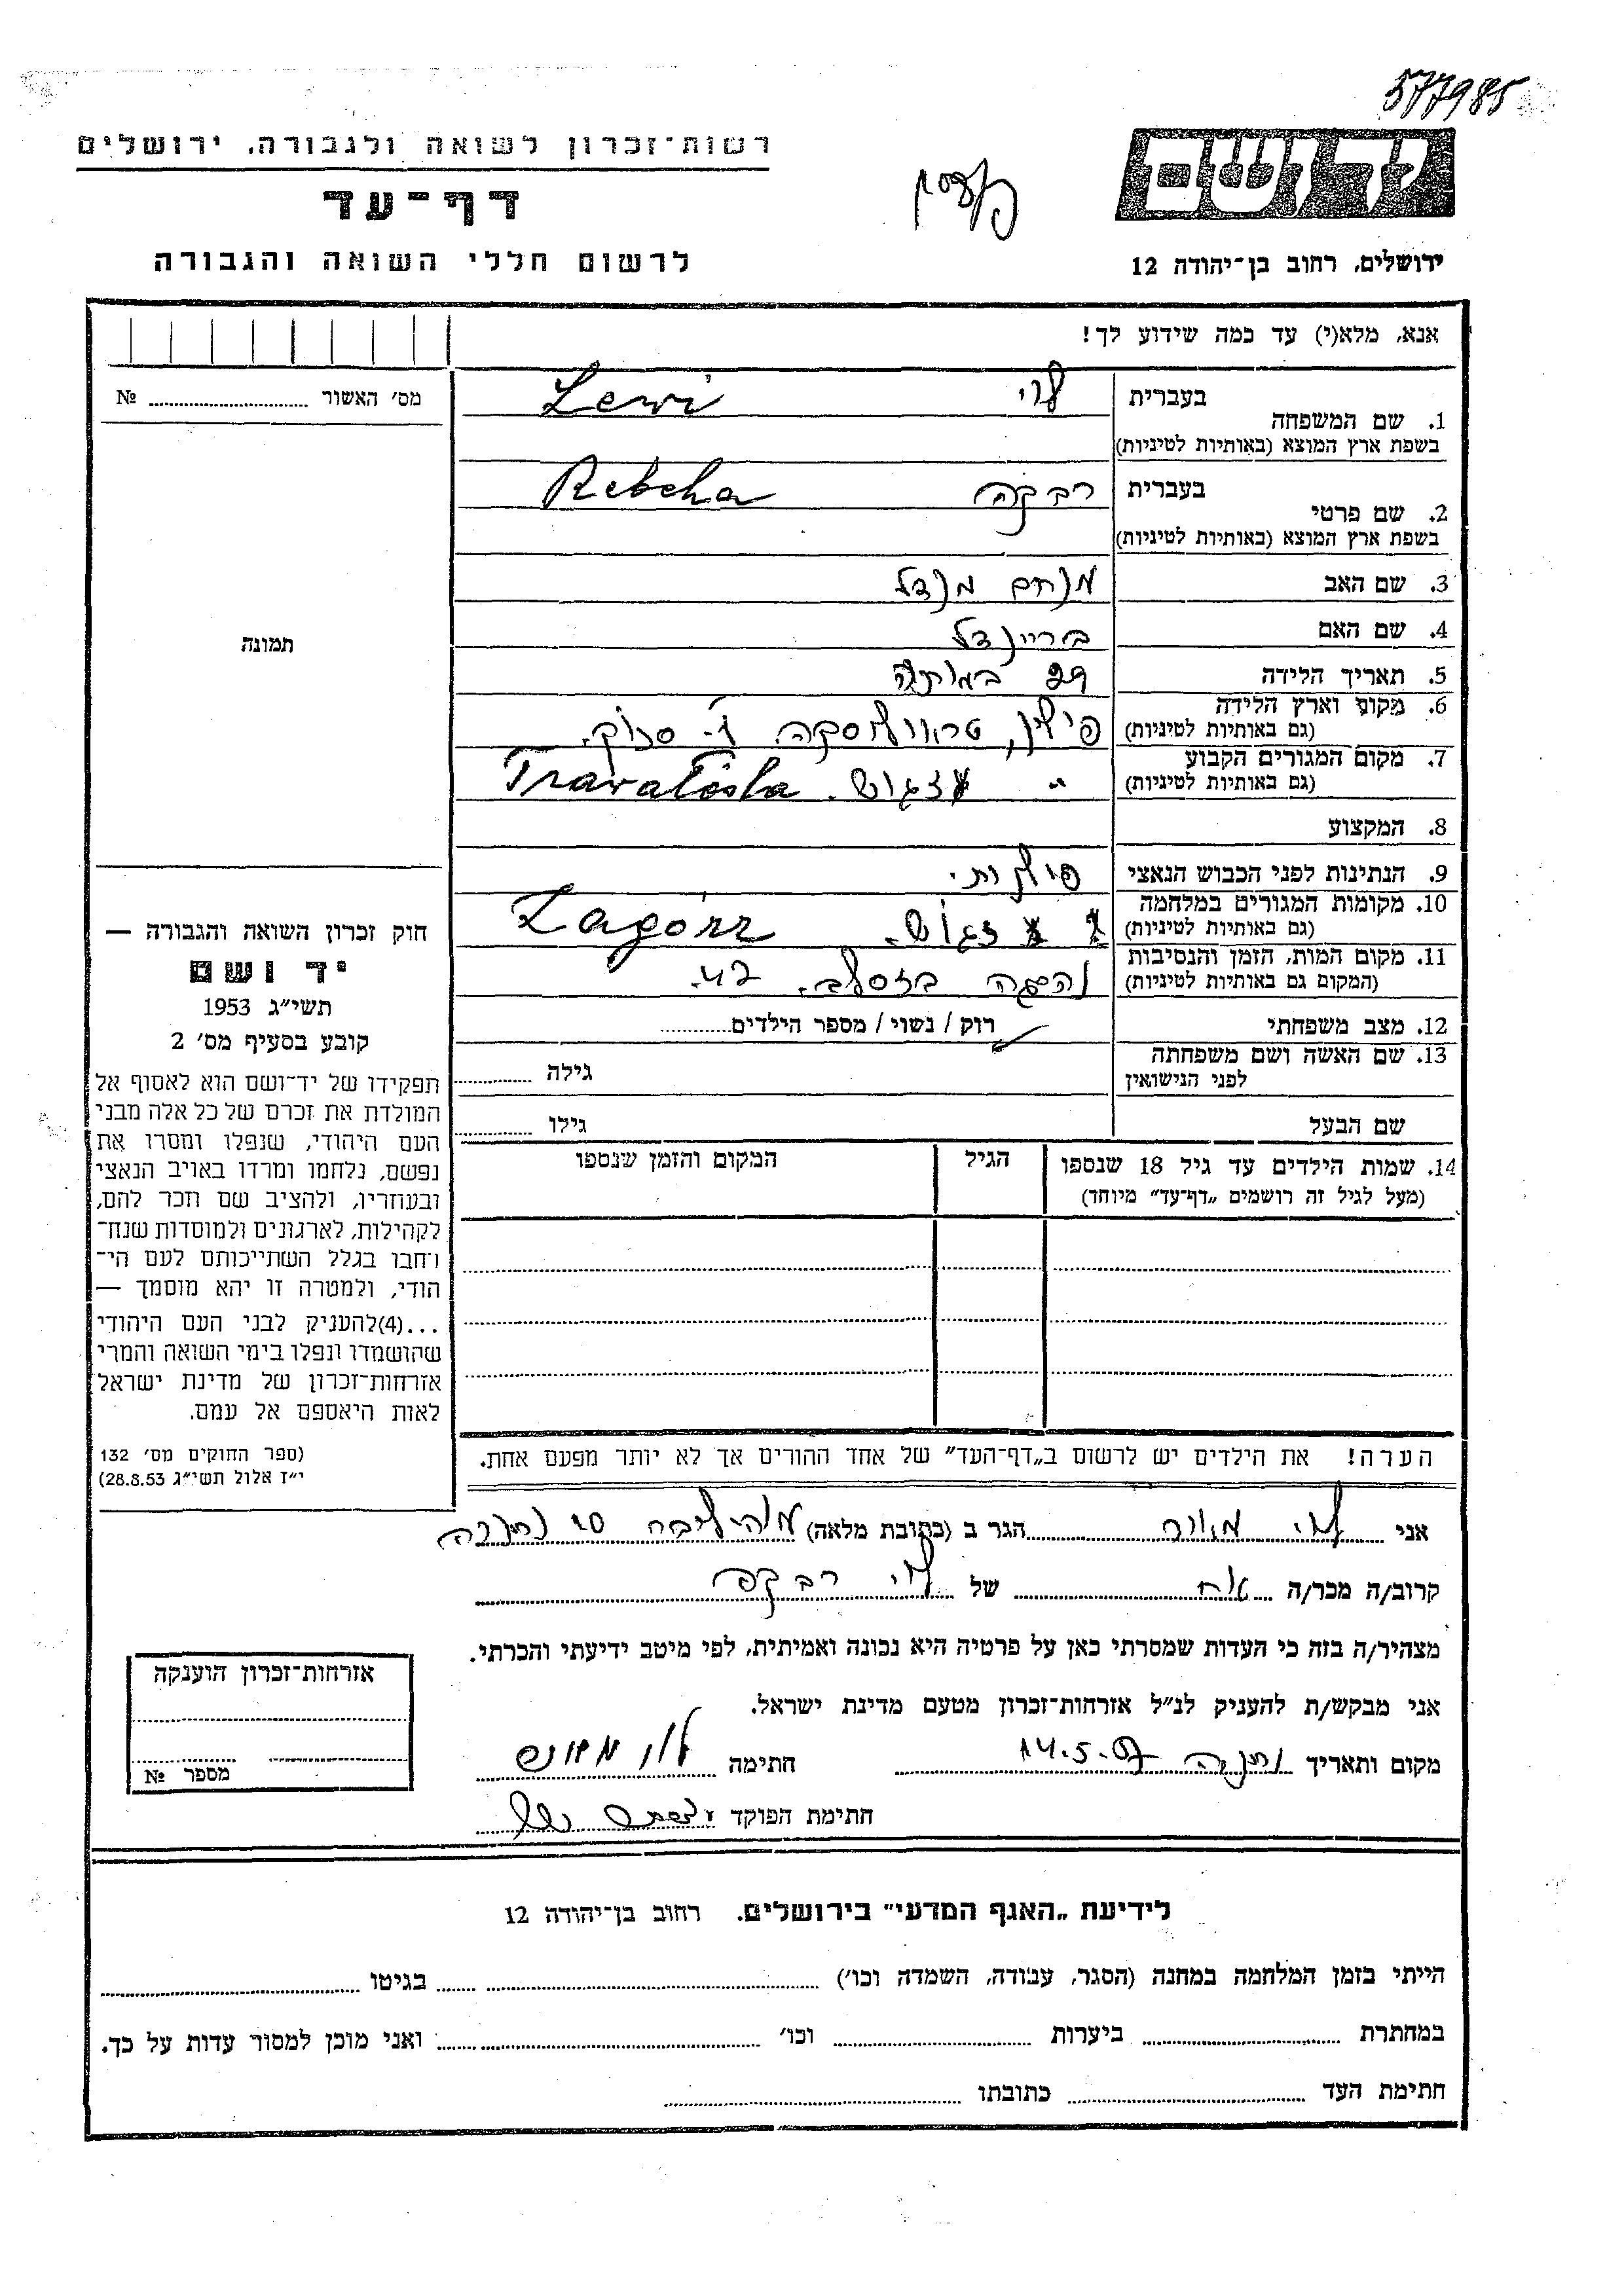 577985
רשות־זכרון לשואה ולגבורה, ירושלים
דף־עד
לרשום חללי השואה והגבורה
ירושלים, רחוב בן־יהודה 12
אנא, מלא(י) עד כמה שידוע לך!
מס׳ האשור № 
תמונה
חוק זכרון השואה והגבורה —
יד ושם
תשי״ג 1953
קובע בסעיף מס׳ 2
תפקידו של יד־ושם הוא לאסוף אל
המולדת את זכרם של כל אלה מבני
העם היהודי, שנפלו ומסרו את
נפשם, נלחמו ומרדו באויב הנאצי
ובעוזריו, ולהציב שם וזכר להם,
לקהילות, לארגונים ולמוסדות שנח־
רחבו בגלל השתייכותם לעם הי־
הודי, ולמטרה זו יהא מוסמך —
...(4)להעניק לבני העם היהודי
שהושמדו ונפלו בימי השואה והמרי
אזרחות־זכרון של מדינת ישראל
לאות היאספם אל עמם.
(ספר החוקים מס׳ 132
י״ז אלול תשי״ג 28.8.53)
בעברית לוי Lewi
1. שם המשפחה
בשפת ארץ המוצא (באותיות לטיניות)
בעברית רבקה Rebeka
2. שם פרטי
בשפת ארץ המוצא (באותיות לטיניות)
3. שם האב מנחם מנדל
4. שם האם בריינדל
5. תאריך הלידה 29
6. מקום וארץ הלידה פולין,
(גם באותיות לטיניות)
7. מקום המגורים הקבוע
(גם באותיות לטיניות)
8. המקצוע
9. הנתינות לפני הכבוש הנאצי פולנית.
10. מקומות המגורים במלחמה Zagórz
(גם באותיות לטיניות)
11. מקום המות, הזמן והנסיבות 42.
(המקום גם באותיות לטיניות)
12. מצב משפחתי רוק / נשוי / מספר הילדים
13. שם האשה ושם משפחתה גילה
לפני הנישואין
שם הבעל גילו
14. שמות הילדים עד גיל 18 שנספו הגיל המקום והזמן שנספו
(מעל לגיל זה רושמים „דף־עד״ מיוחד)
הערה! את הילדים יש לרשום ב„דף־העד״ של אחד ההורים אך לא יותר מפעם אחת.
אני לוי הגר ב (כתובת מלאה) נתניה
קרוב/ה מכר/ה אח של לוי רבקה
מצהיר/ה בזה כי העדות שמסרתי כאן על פרטיה היא נכונה ואמיתית, לפי מיטב ידיעתי והכרתי.
אני מבקש/ת להעניק לנ״ל אזרחות־זכרון מטעם מדינת ישראל.
מקום ותאריך נתניה 14.5. חתימה
חתימת הפוקד
אזרחות־זכרון הוענקה
מספר №
לידיעת „האגף המדעי״ בירושלים. רחוב בן־יהודה 12
הייתי בזמן המלחמה במחנה (הסגר, עבודה, השמדה וכו׳) בגיטו
במחתרת ביערות וכו׳ ואני מוכן למסור עדות על כך.
חתימת העד כתובתו